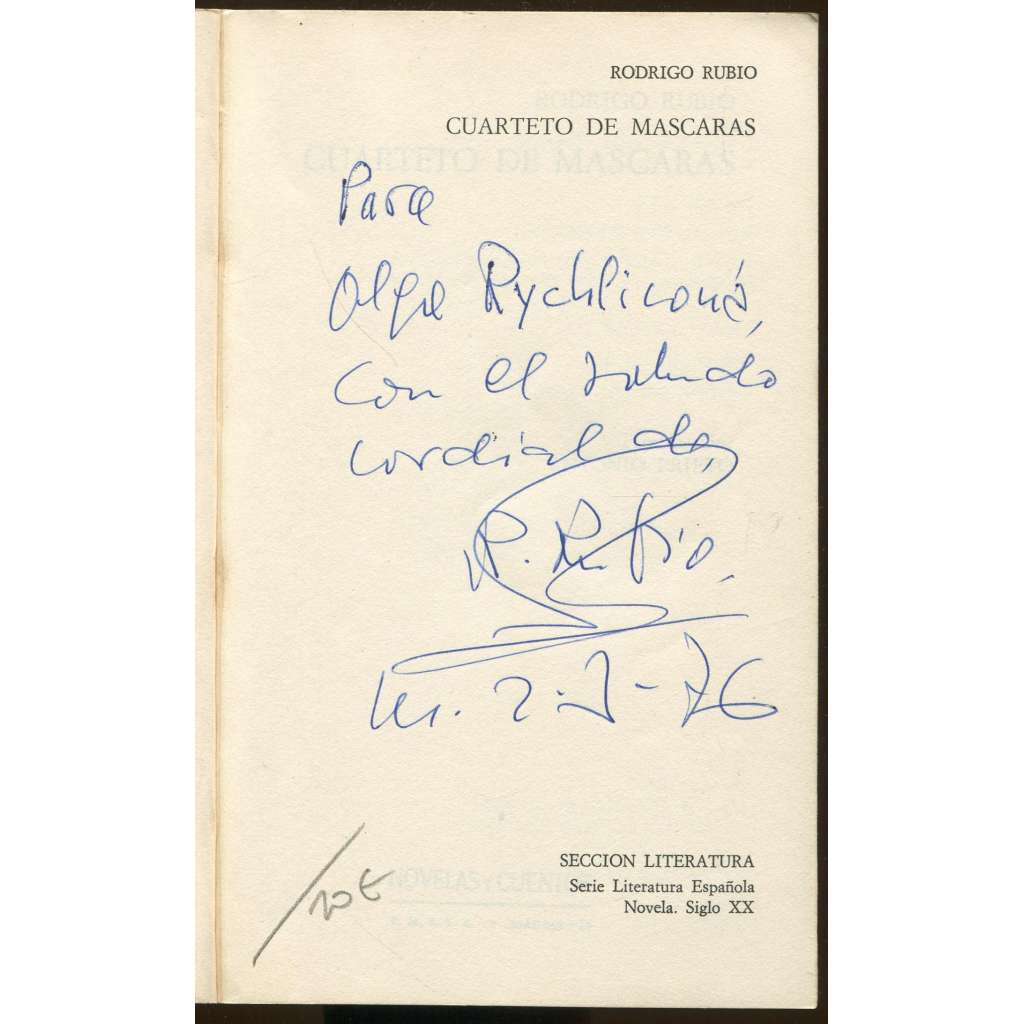 RODRIGO RUBIO
CUARTETO DE MASCARAS
Para
Olga Rychlicová,
con el saludo
cordial de
R. Rubio,
M. 2-3-76
SECCION LITERATURA
Serie Literatura Española
Novela. Siglo XX
20 €
NOVELAS Y CUENTOS